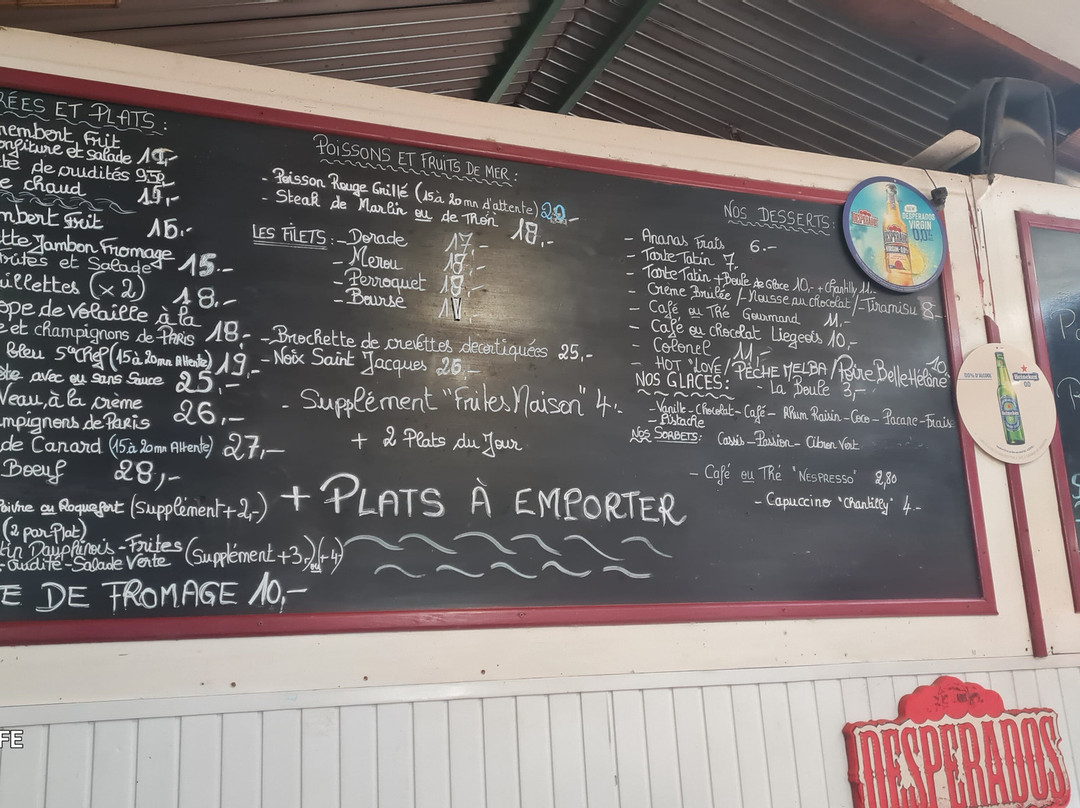 RÉES ET PLATS :
membert Frit
onfiture et salade
té de crudités 9,50
e chaud
mbert frit 15.-
tte Jambon Fromage
Frites et Salade 15.-
uillettes (x 2) 18.-
ope de Volaille à la
e et champignons de Paris 18,-
Bleu (15 à 20mn Attente) 19,-
ète avec ou sans Sauce 25,-
Veau, à la crème
mpignons de Paris 26,-
de Canard (15 à 20mn Attente) 27,-
Boeuf 28,-
Poivre ou Roquefort (Supplément +2,-)
(2 par Plat)
tin Dauphinois - Frites
udité - Salade Verte (Supplément +3,-) ou (+4)
E DE FROMAGE 10,-
POISSONS ET FRUITS DE MER :
- Poisson Rouge Grillé (15 à 20mn d'attente)
- Steak de Marlin ou de Thon 18,-
LES FILETS : - Dorade 17,-
- Merou
- Perroquet 18,-
- Bourse
- Brochette de crevettes décortiquées 25,-
- Noix Saint Jacques 26,-
- Supplément "Frites Maison" 4.-
+ 2 Plats du Jour
+ PLATS À EMPORTER
NOS DESSERTS :
- Ananas Frais 6.-
- Tarte Tatin 7.
- Tarte Tatin + Boule de Glace 10,- + Chantilly 11.-
- Crème Brulée / Mousse au chocolat / Tiramisu 8-
- Café ou Thé Gourmand 11,-
- Café ou chocolat Liegeois 10,-
- Colonel 11,-
- HOT "LOVE / PÊCHE MELBA / Poire Belle Hélène 10.
NOS GLACES : - La Boule 3,-
- Vanille - Chocolat - Café - Rhum Raisin - Coco - Pacane - Frais
- Pistache
NOS SORBETS : Cassis - Passion - Citron Vert
- Café ou Thé "NESPRESSO" 2,80
- Capuccino "Chantilly" 4.-
NEW
DESPERADOS
VIRGIN
0,0%
Heineken
DESPERADOS
FE